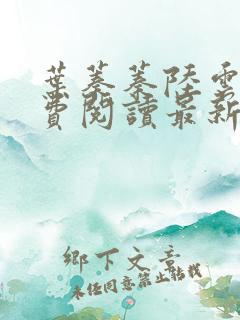 葉蓁蓁陸雲
費閱讀最新
鄉下文章
未經同意禁止轉載